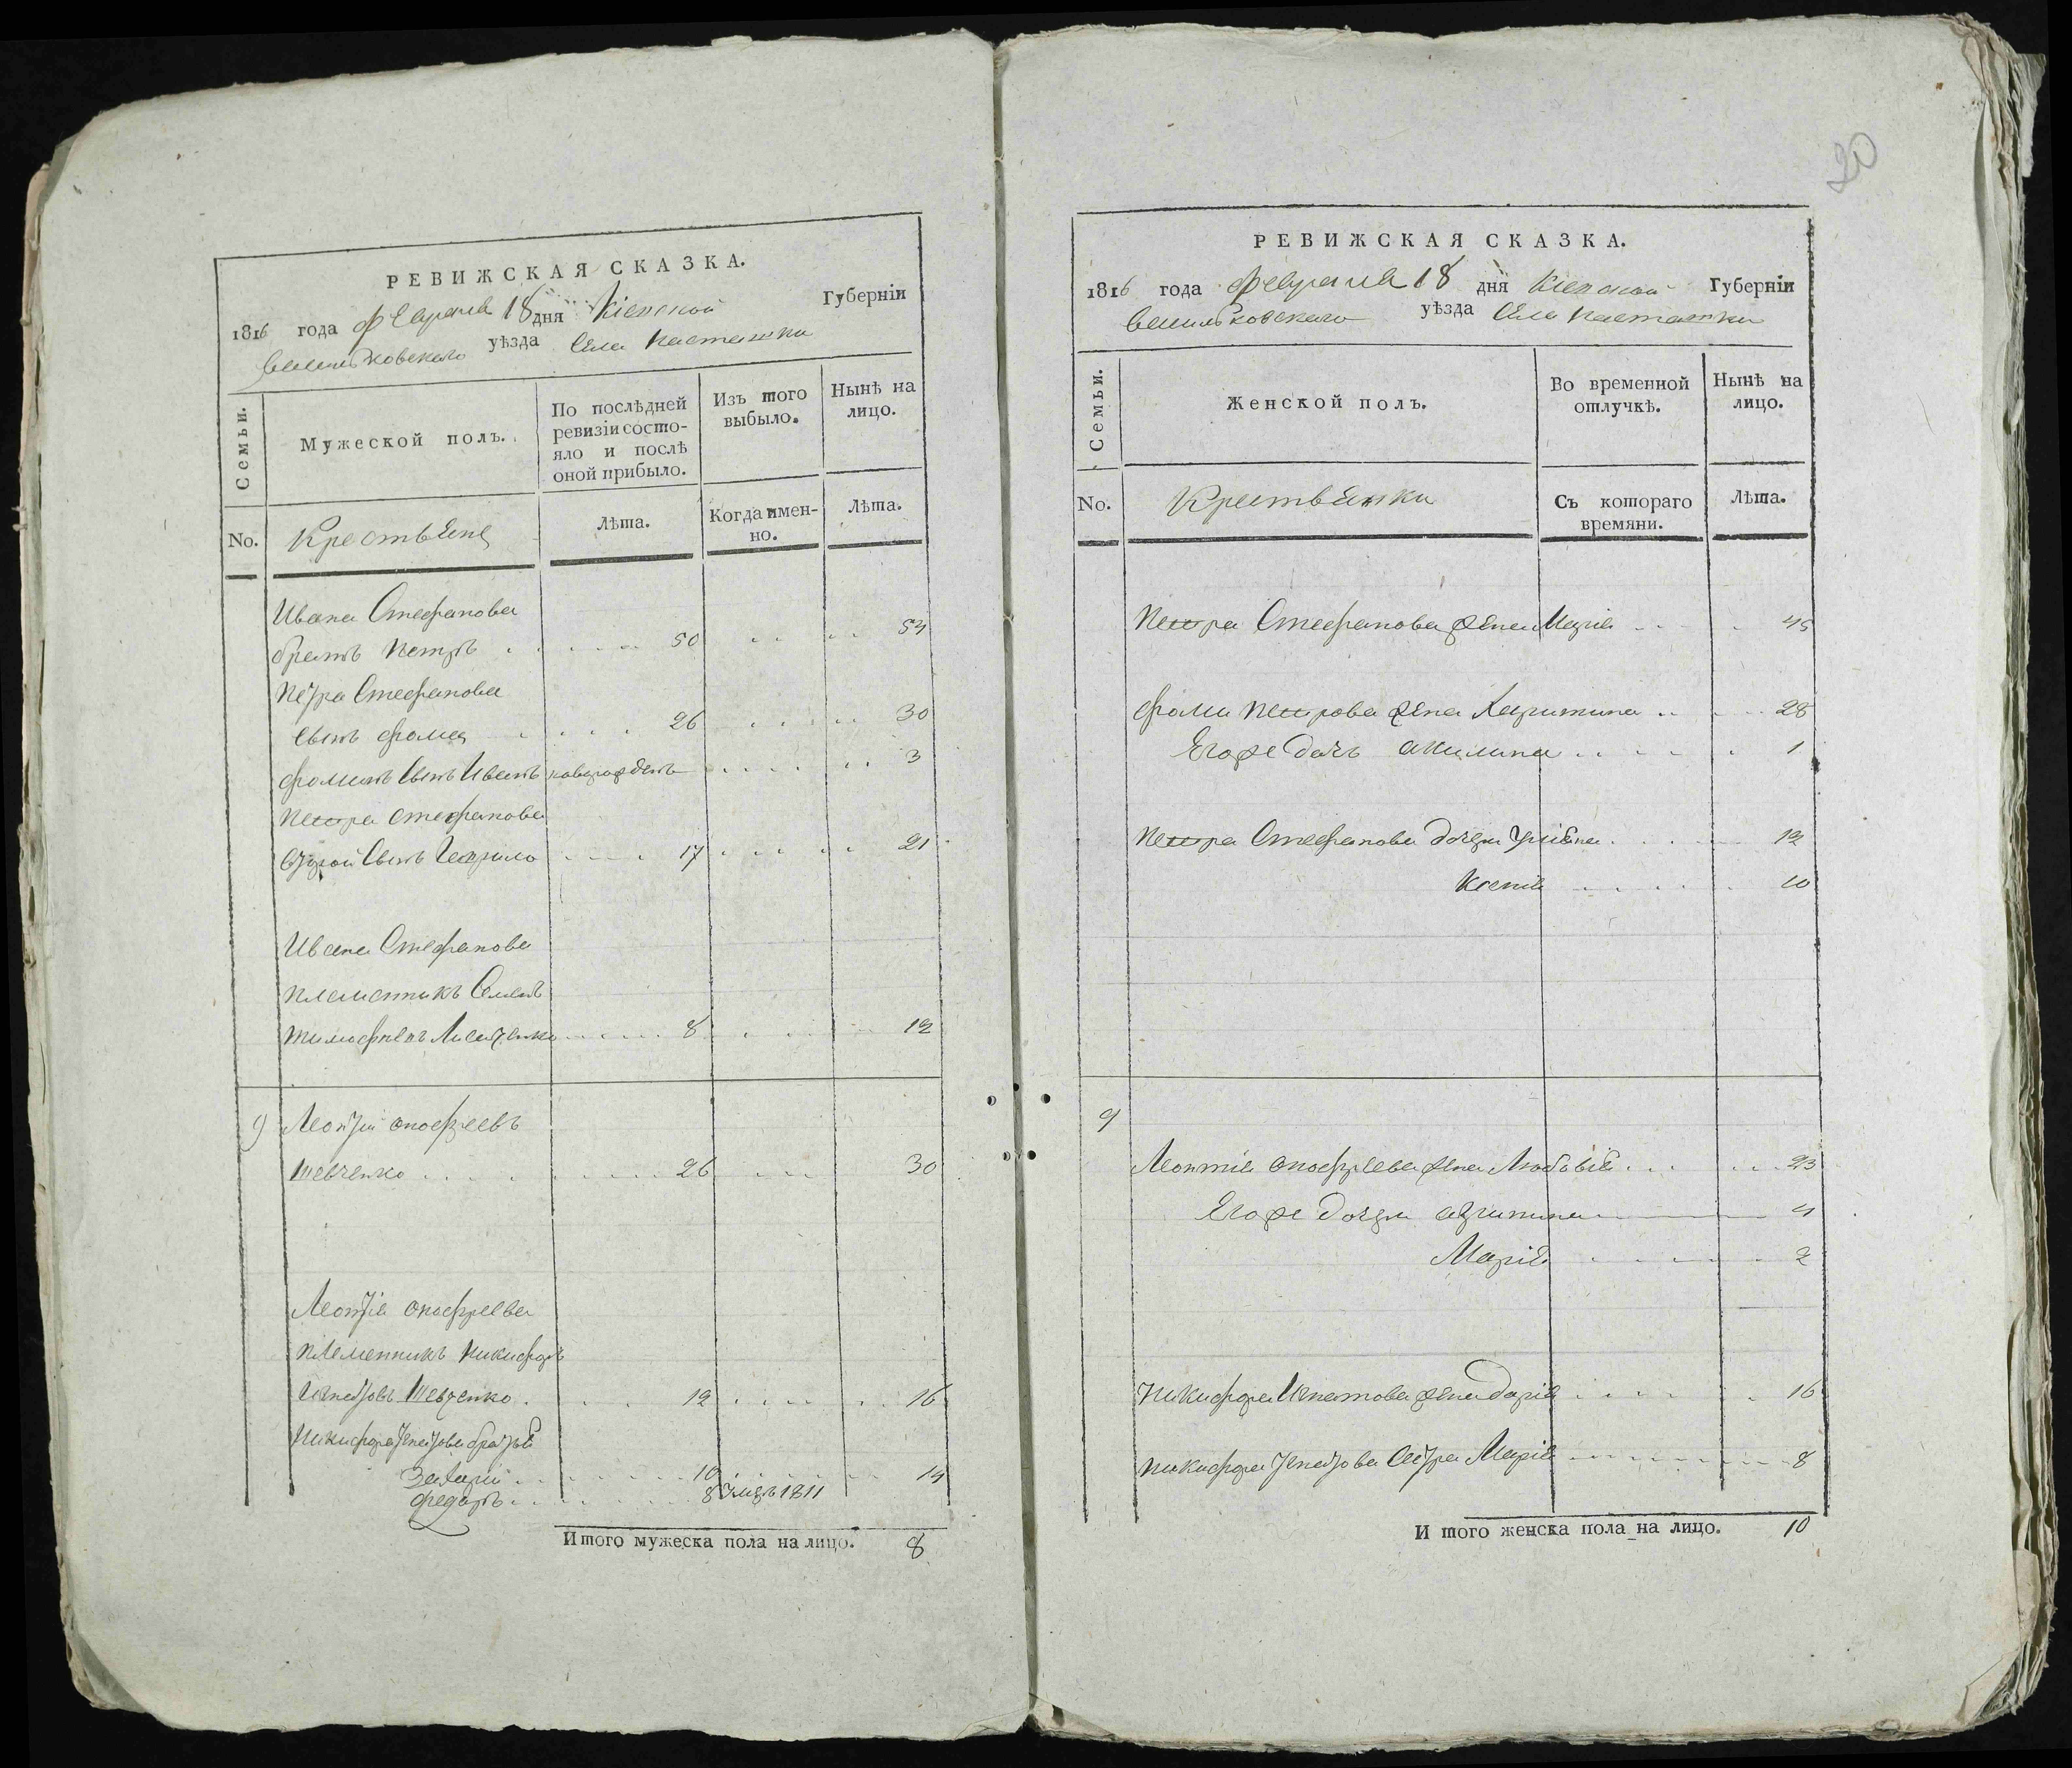 РЕВИЖСКАЯ СКАЗКА.
1816 года февраля 18 дня Кіевской Губерніи
Васильковскаго уѣзда села Насташки
Семьи.
Мужеской полъ.
По послѣдней ревизіи состояло и послѣ оной прибыло.
Изъ того выбыло.
Нынѣ на лицо.
No.
Крестьяне
Лѣта.
Когда имен-но.
Лѣта.
Ивана Стефанова
братъ Петръ . . . . . . 50 . . . . 54
Петра Стефанова
сынъ Фома . . . . 26 . . . . . 30
Фоминъ сынъ Иванъ новорожденъ . . . . . . 3
Петра Стефанова
другой сынъ Гаврило . . . . 17 . . . . . . 21
Ивана Стефанова
племянникъ Семенъ
Тимофѣевъ . . . . . 8 . . . . 12
9 Леонтій Онофреевъ
Шевченко . . . . . . . . . 26 . . . 30
Леонтія Онофреева
племянникъ Никифоръ
Игнатовъ Шевченко . . . . 12 . . . . . . 16
Никифора Игнатова братья
Захарій . . . . . . . . 10 . . . . . 14
Федоръ . . . . . . . . 8 умре 1811
Итого мужеска пола на лицо. 8
20
РЕВИЖСКАЯ СКАЗКА.
1816 года февраля 18 дня Кіевской Губерніи
Васильковскаго уѣзда села Насташки
Семьи.
Женской полъ.
Во временной отлучкѣ.
Нынѣ на лицо.
No.
Крестьянки
Съ котораго времяни.
Лѣта.
Петра Стефанова жена Марія . . . 45
Фомы Петрова жена Харитина . . . . . 28
Егоже дочь Акилина . . . . . . 1
Петра Стефанова дочери Уліяна . . . . . 12
Ксенія . . . . . . 10
9
Леонтія Онофреева жена . . . . . . 23
Егоже дочери 4
Марія . . . . . . 2
Никифора Игнатова жена Дарія . . . . . 16
Никифора Игнатова сестра Марія . . . . . . . 8
Итого женска пола на лицо. 10